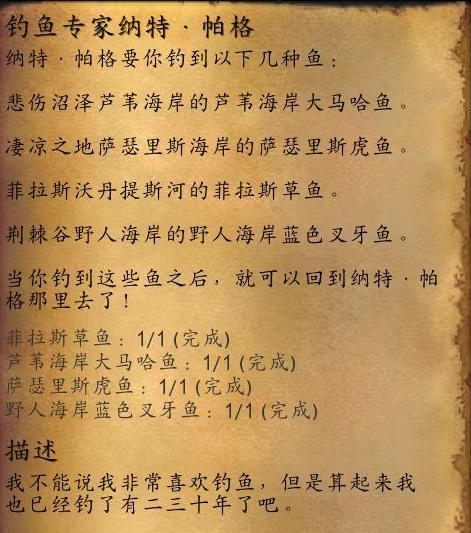 钓鱼专家纳特·帕格
纳特·帕格要你钓到以下几种鱼：
悲伤沼泽芦苇海岸的芦苇海岸大马哈鱼。
凄凉之地萨瑟里斯海岸的萨瑟里斯虎鱼。
菲拉斯沃丹提斯河的菲拉斯草鱼。
荆棘谷野人海岸的野人海岸蓝色叉牙鱼。
当你钓到这些鱼之后，就可以回到纳特·帕
格那里去了！
菲拉斯草鱼：1/1 (完成)
芦苇海岸大马哈鱼：1/1 (完成)
萨瑟里斯虎鱼：1/1 (完成)
野人海岸蓝色叉牙鱼：1/1 (完成)
描述
我不能说我非常喜欢钓鱼，但是算起来我
也已经钓了有二三十年了吧。